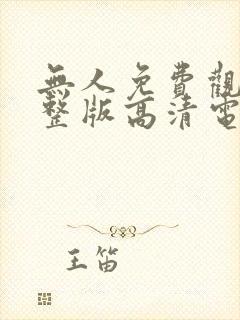 無人免費觀
整版高清電
王笛